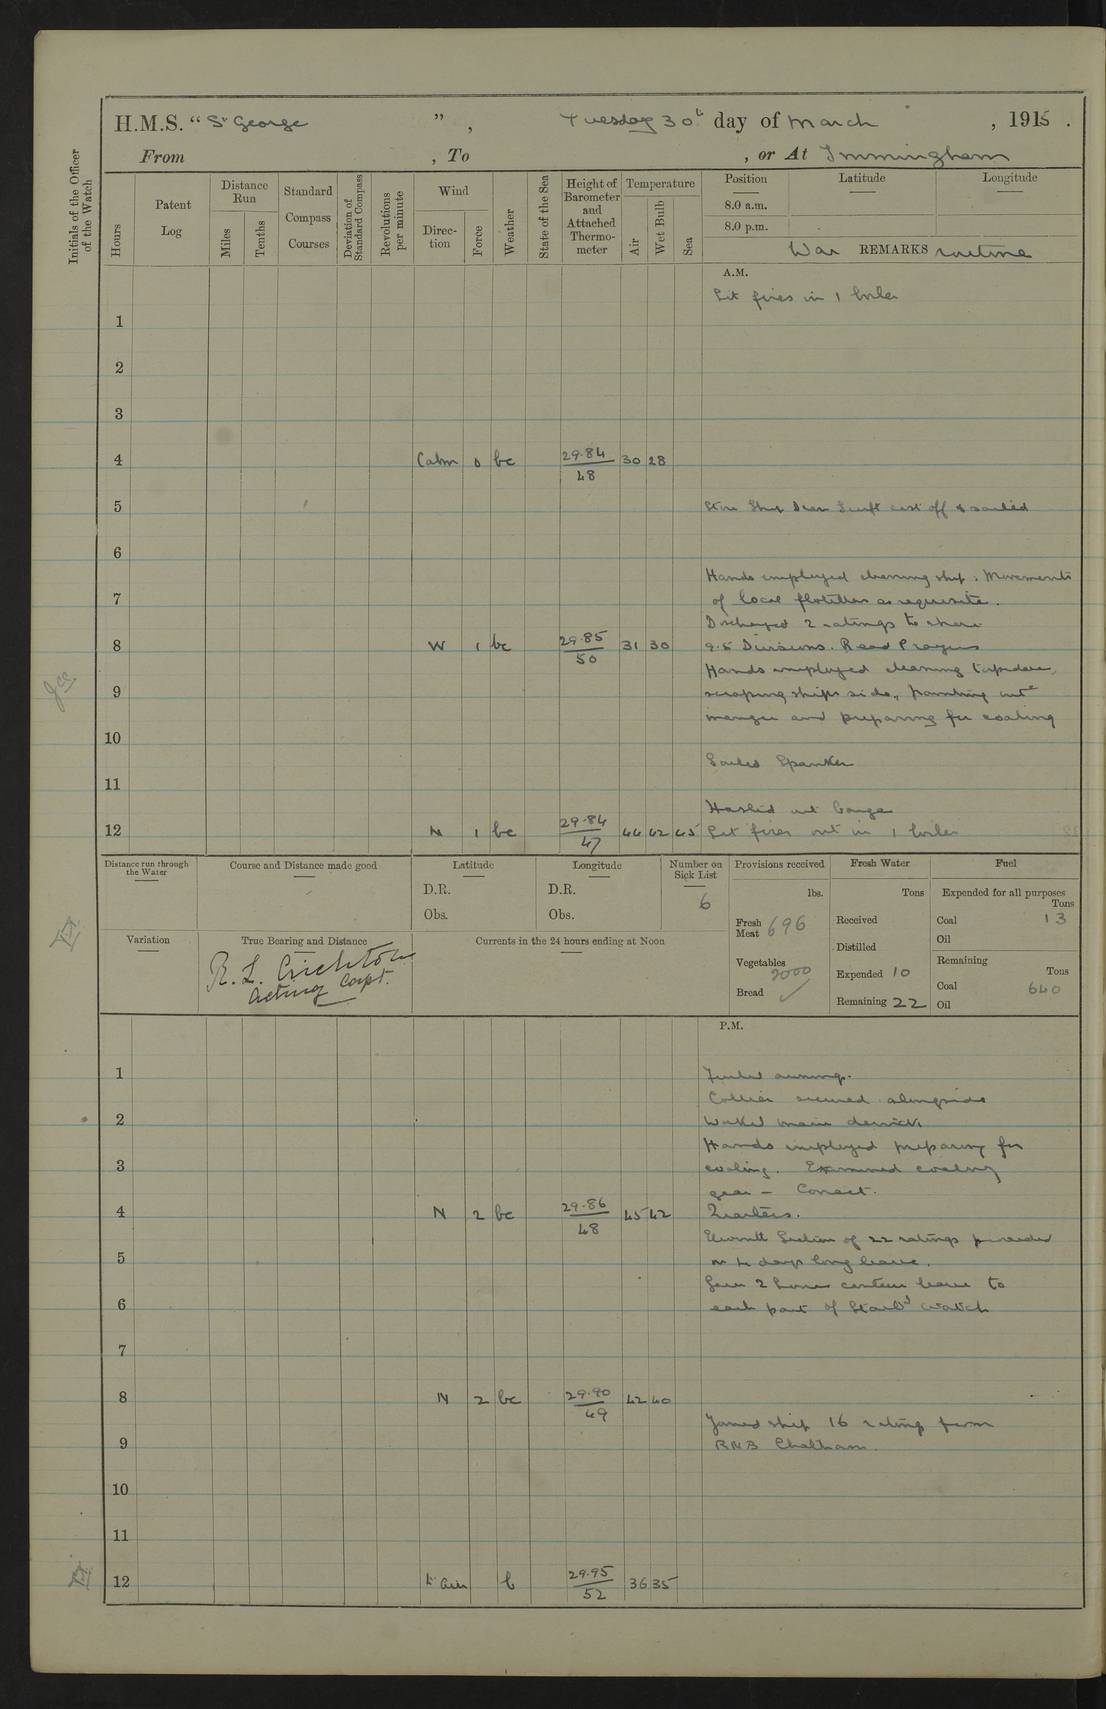 H.M.S. "St George", Tuesday 30th day of March, 1915.
From , To , or At Immingham
Initials of the Officer of the Watch
Hours
Patent Log
Distance Run
Miles
Tenths
Standard Compass Courses
Deviation of Standard Compass
Revolutions per minute
Wind
Direction
Force
Weather
State of the Sea
Height of Barometer and Attached Thermometer
Temperature
Air
Wet Bulb
Sea
Position Latitude Longitude
8.0 a.m.
8.0 p.m.
War REMARKS routine
A.M.
Lit fires in 1 boiler
1
2
3
4 Calm 0 bc 29.84 30 28
48
5 Store Ship Dean Swift cast off & sailed
6
Hands employed cleaning ship. Movements
7 of local flotillas as requisite.
Discharged 2 ratings to shore
8 W 1 bc 29.85 31 30 9.5 Divisions. Read Prayers
50
Hands employed cleaning torpedoes,
9 scraping ships side, painting
manger and preparing for coaling
10
Sailed Spanker
11
Hauled out barge
12 N 1 bc 29.84 44 42 45 Let fires out in 1 boiler
47
Distance run through the Water
Course and Distance made good
Latitude
D.R.
Obs.
Longitude
D.R.
Obs.
Number on Sick List
6
Provisions received
lbs.
Fresh Meat 696
Vegetables 2000
Bread ✓
Fresh Water
Tons
Received
Distilled
Expended 10
Remaining 22
Fuel
Expended for all purposes
Tons
Coal 13
Oil
Remaining
Tons
Coal 640
Oil
Variation
True Bearing and Distance
R. L. Crichton
Acting Capt.
Currents in the 24 hours ending at Noon
P.M.
1 Furled awnings.
Collier secured alongside
2 Worked main derrick
Hands employed preparing for
3 coaling. Examined coaling
gear – Correct.
4 N 2 bc 29.86 45 42 Quarters.
48
Section of 22 ratings proceeded
5 on 4 days long leave.
Gave 2 hours canteen leave to
6 each part of Starbd watch
7
8 N 2 bc 29.90 42 40
49
Joined ship 16 ratings from
9 RNB Chatham.
10
11
12 Lt airs b 29.95 36 35
52